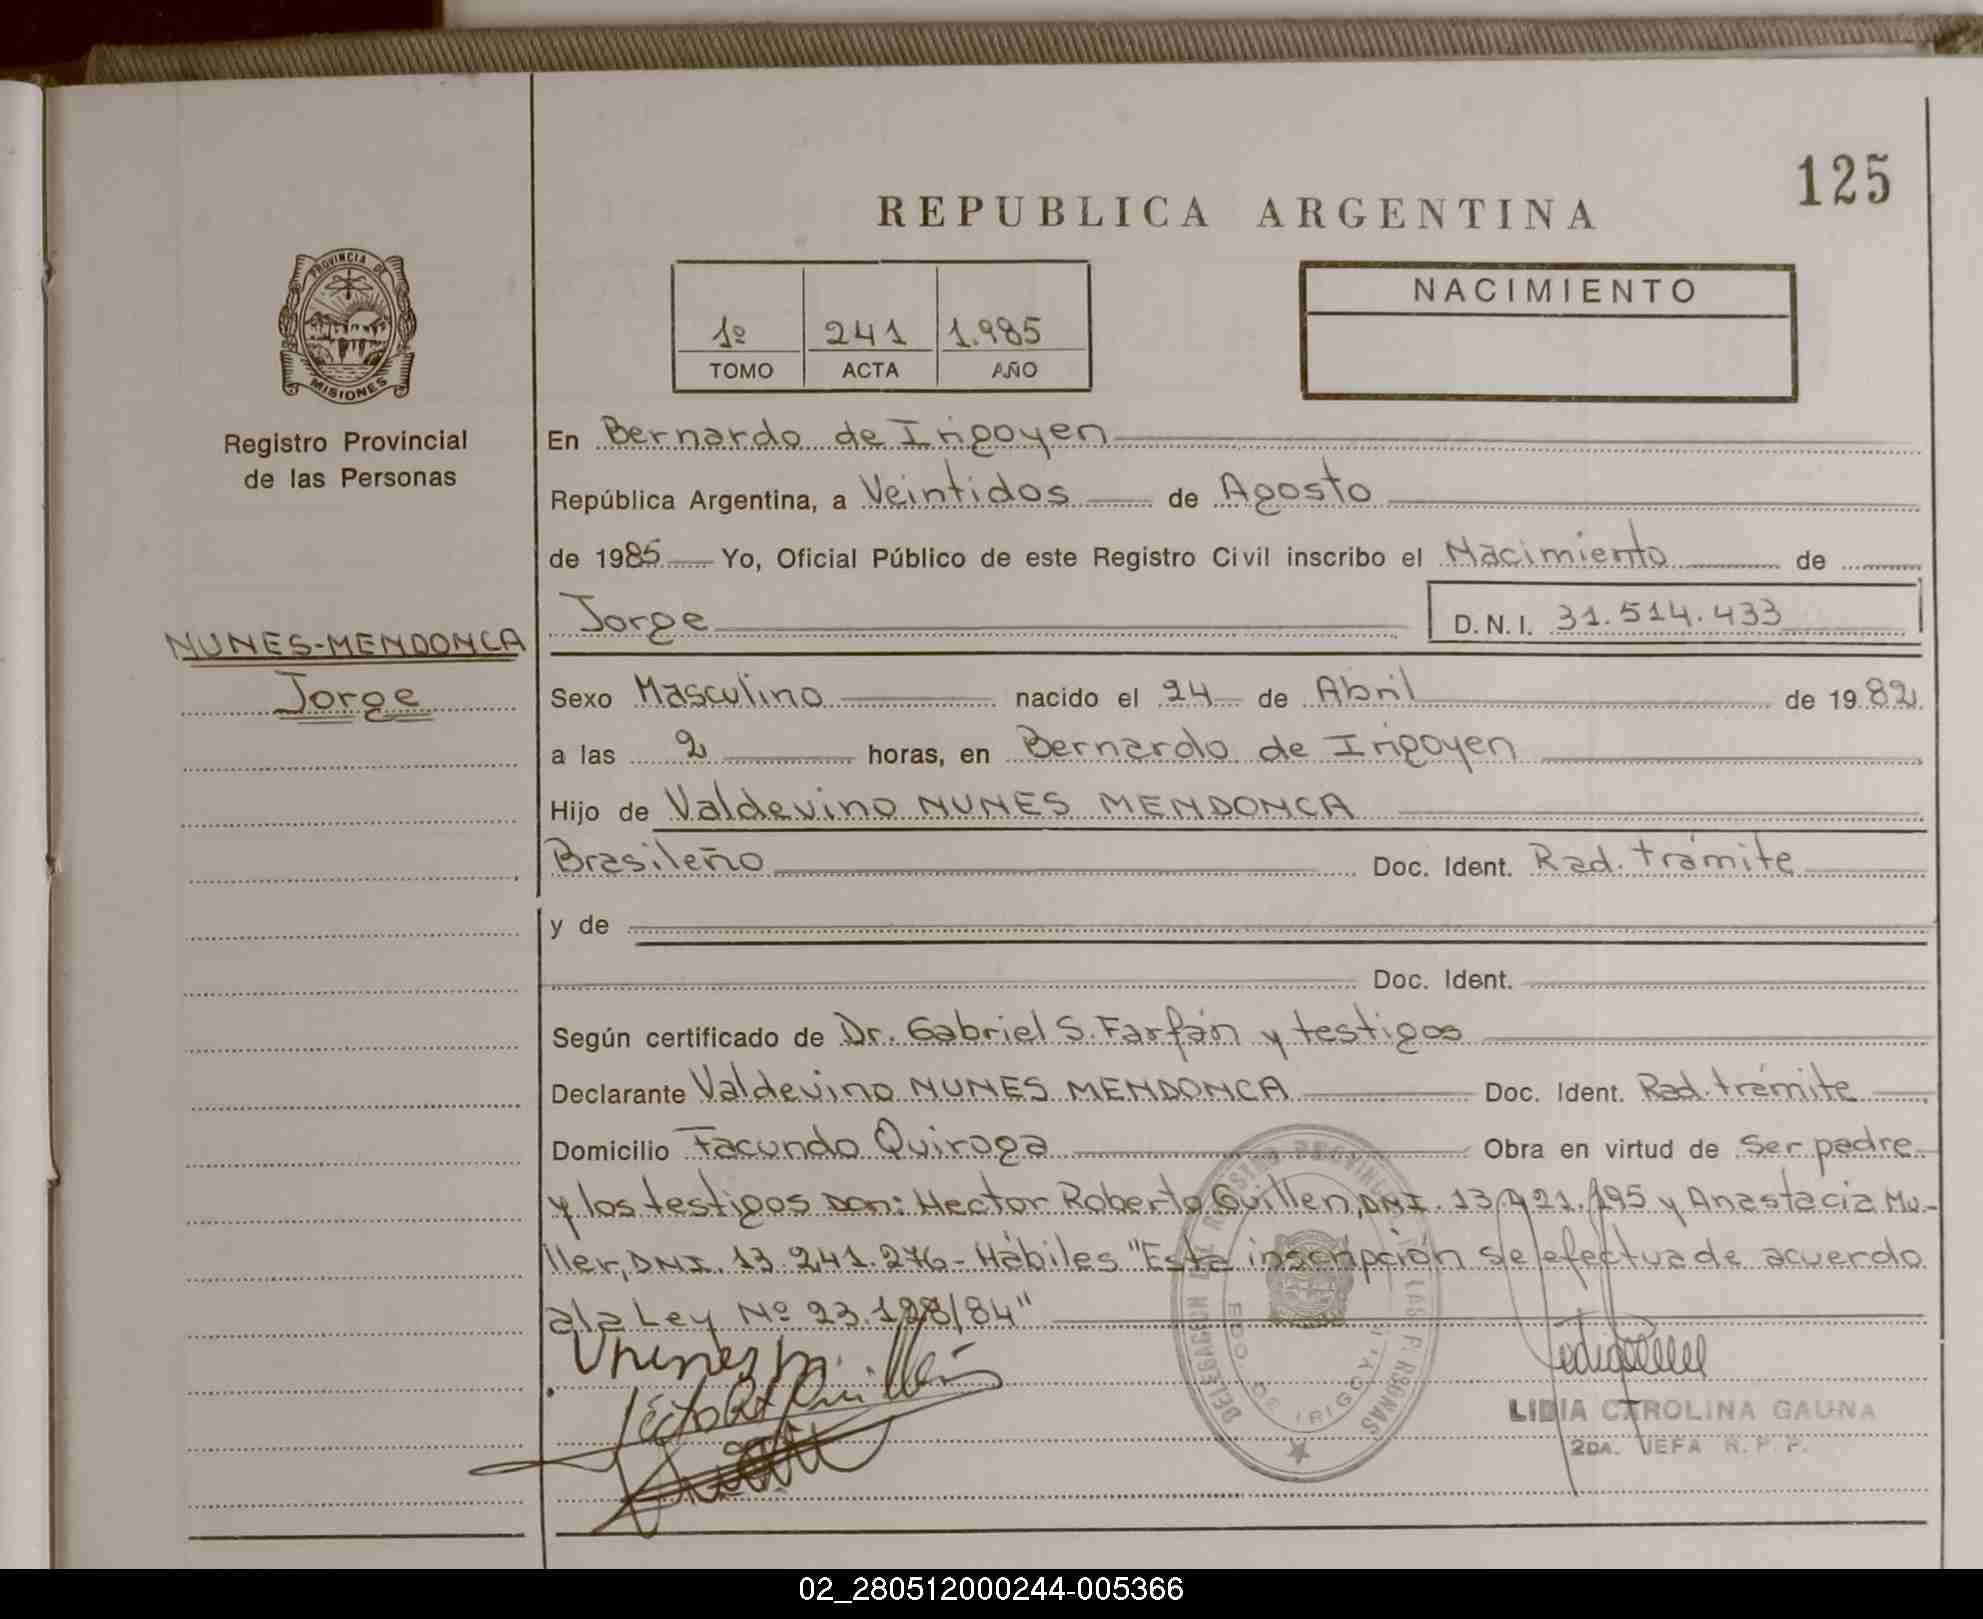 125
REPUBLICA ARGENTINA
PROVINCIA DE
MISIONES
Registro Provincial
de las Personas
1º 241 1.985
TOMO ACTA AÑO
NACIMIENTO
En Bernardo de Irigoyen
República Argentina, a Veintidos de Agosto
de 1985 Yo, Oficial Público de este Registro Civil inscribo el Nacimiento de
Jorge D.N.I. 31.514.433
NUNES-MENDONCA
Jorge
Sexo Masculino nacido el 24 de Abril de 1982
a las 2 horas, en Bernardo de Irigoyen
Hijo de Valdevino NUNES MENDONCA
Brasileño Doc. Ident. Rad. trámite
y de
Doc. Ident.
Según certificado de Dr. Gabriel S. Farfán y testigos
Declarante Valdevino NUNES MENDONCA Doc. Ident. Rad. trámite
Domicilio Facundo Quiroga Obra en virtud de ser padre
y los testigos Don: Hector Roberto Guillen, DNI. 13. y Anastacia Mu-
ller, DNI. 13 241.276 - Hábiles "Esta inscripción se efectua de acuerdo
a la Ley Nº 23.128/84"
DELEGACION DEL REGISTRO PROVINCIAL DE LAS PERSONAS
BDO. DE IRIGOYEN
LIDIA CAROLINA GAUNA
2DA. JEFA R. P. P.
02_280512000244-005366